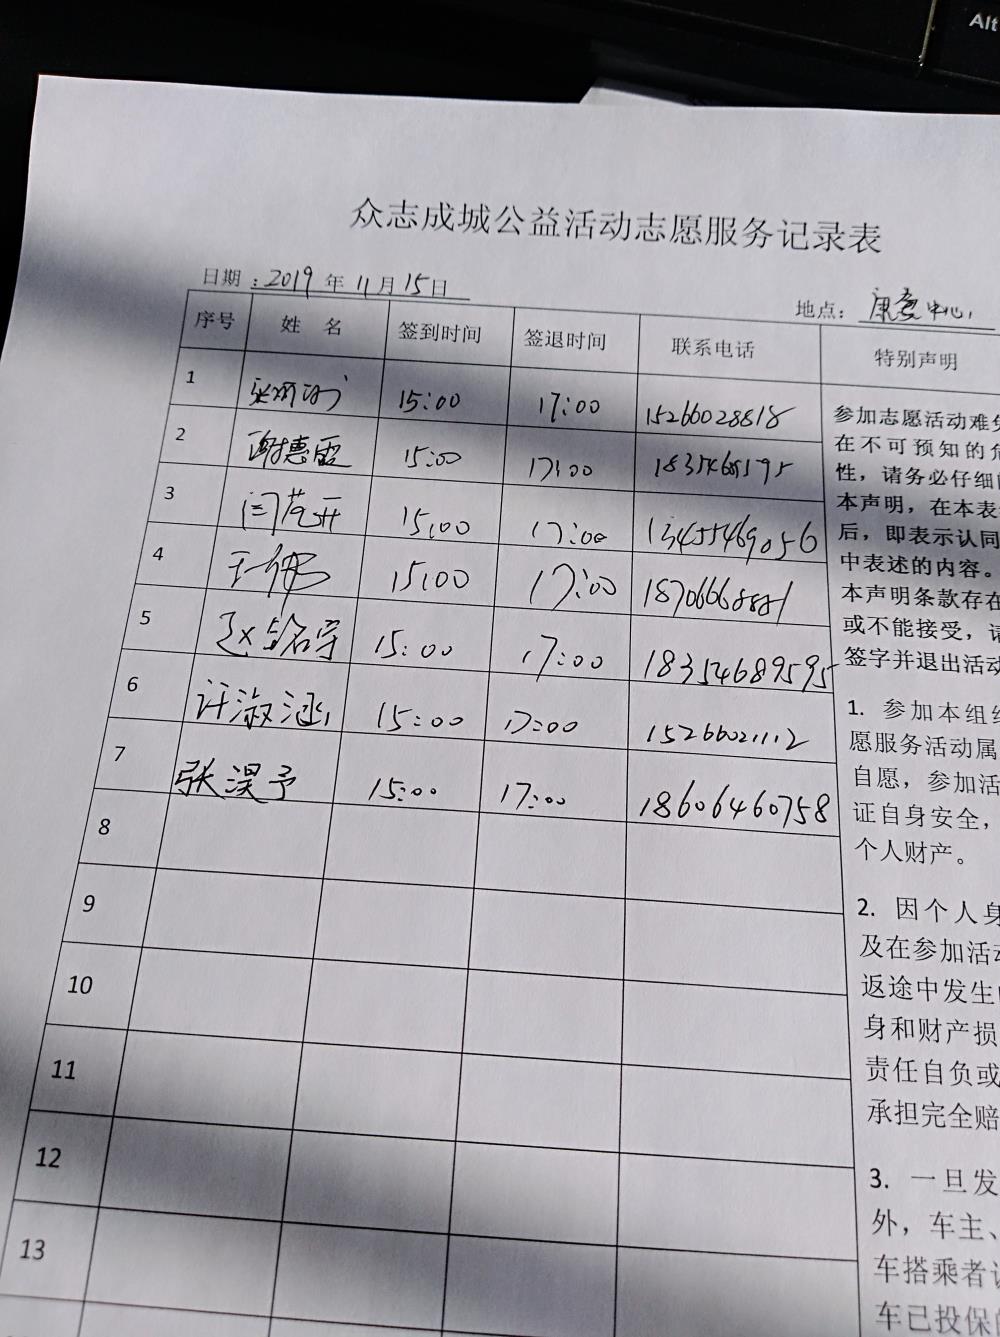 Alt
众志成城公益活动志愿服务记录表
日期：2019年11月15日
地点：康复中心
序号 姓 名 签到时间 签退时间 联系电话 特别声明
1 15:00 17:00 15266028818
2 谢惠霞 15:00 17:00
3 闫芃开 15:00 17:00 13455469056
4 王伟 15:00 17:00 18706668881
5 15:00 17:00 18354689595
6 许淑涵 15:00 17:00 15266021112
7 张淏予 15:00 17:00 18606460758
8
9
10
11
12
13
参加志愿活动难免
在不可预知的危
性，请务必仔细
本声明，在本表
后，即表示认同
中表述的内容。
本声明条款存在
或不能接受，请
签字并退出活动
1. 参加本组织
愿服务活动属
自愿，参加活
证自身安全，
个人财产。
2. 因个人身
及在参加活动
返途中发生
身和财产损
责任自负或
承担完全赔
3. 一旦发
外，车主、
车搭乘者
车已投保